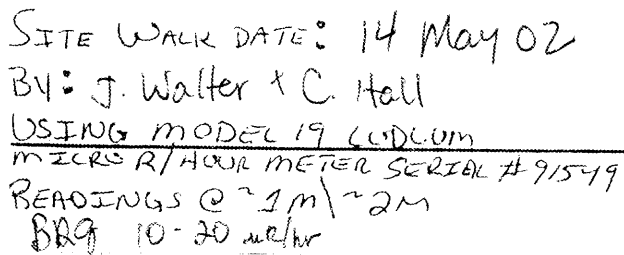 SITE WALK DATE: 14 May 02
BY: J. Walter + C. Hall
USING MODEL 19 LUDLUM
MICRO R/HOUR METER SERIAL # 91549
READINGS @ ~1M\~2M
BRG 10-20 uR/hr